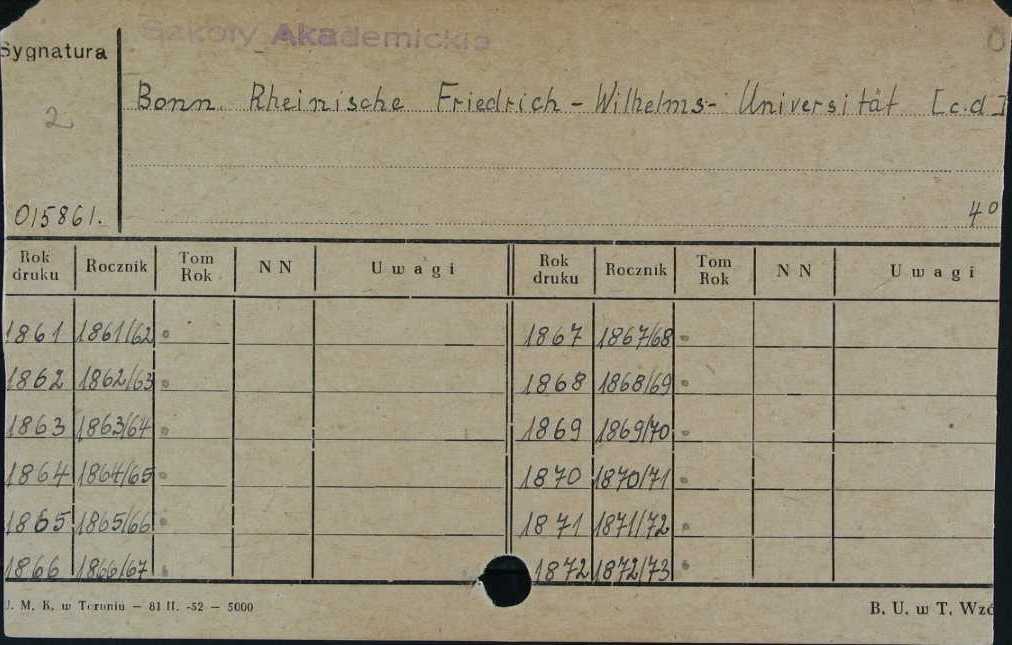 Szkoły Akademickie
Sygnatura
Bonn. Rheinische Friedrich-Wilhelms-Universität [c.d]
2
015861.
4⁰
Rok druku Rocznik Tom Rok NN Uwagi Rok druku Rocznik Tom Rok NN Uwagi
1861 1861/62 1867 1867/68
1862 1862/63 1868 1868/69
1863 1863/64 1869 1869/70
1864 1864/65 1870 1870/71
1865 1865/66 1871 1871/72
1866 1866/67 1872 1872/73
U. M. K. w Toruniu — 81 II. -52 — 5000 B. U. w T.